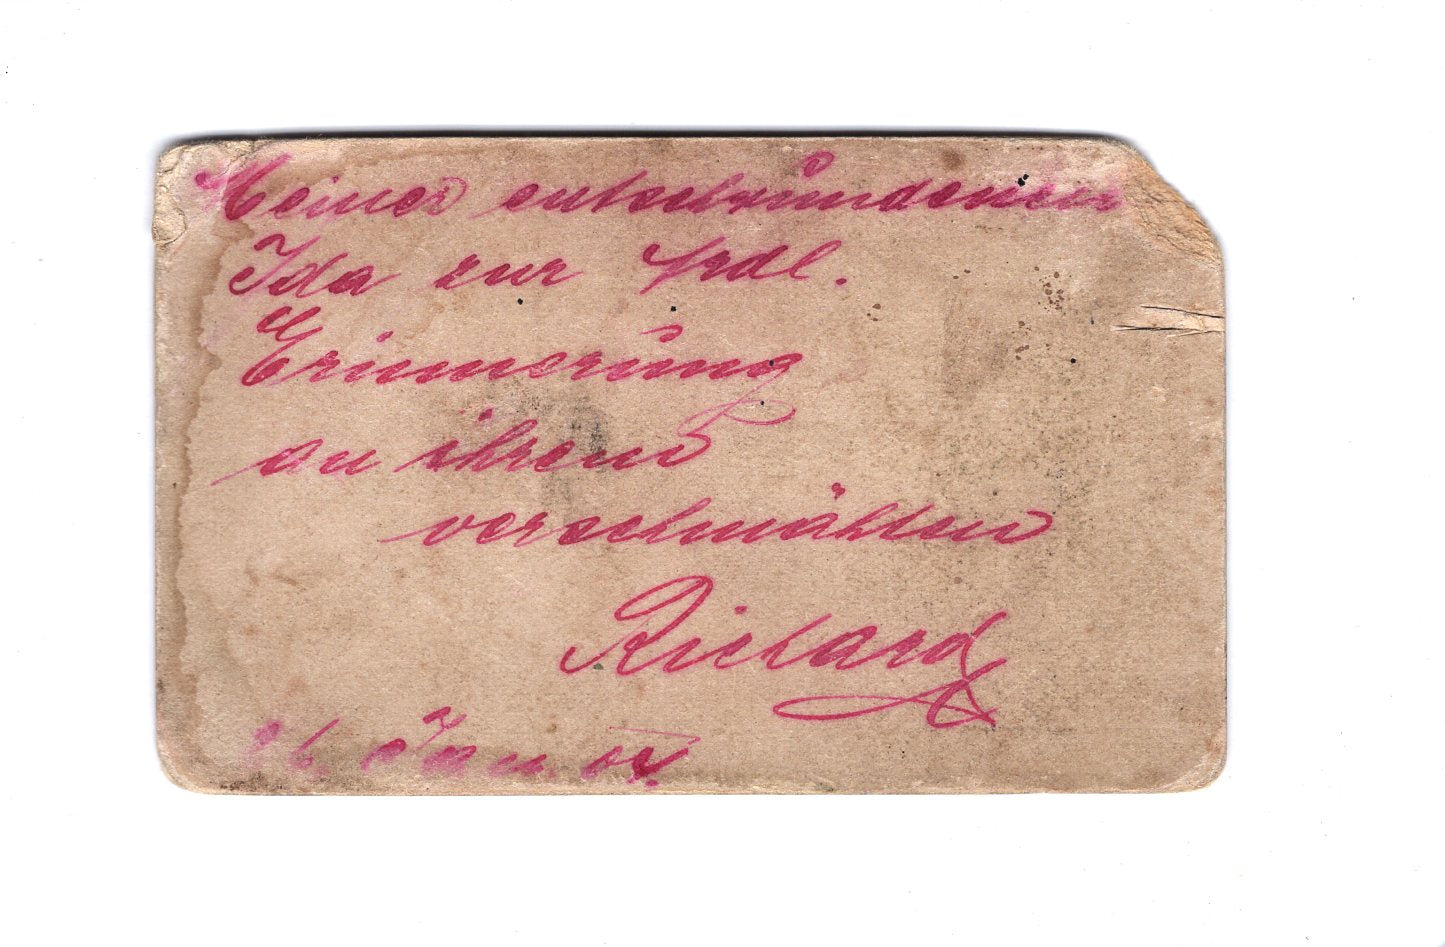 Meiner entschwundenen
Ida zur frdl.
Erinnerung
an ihren
verschmähten
Richard
Jan. 07.